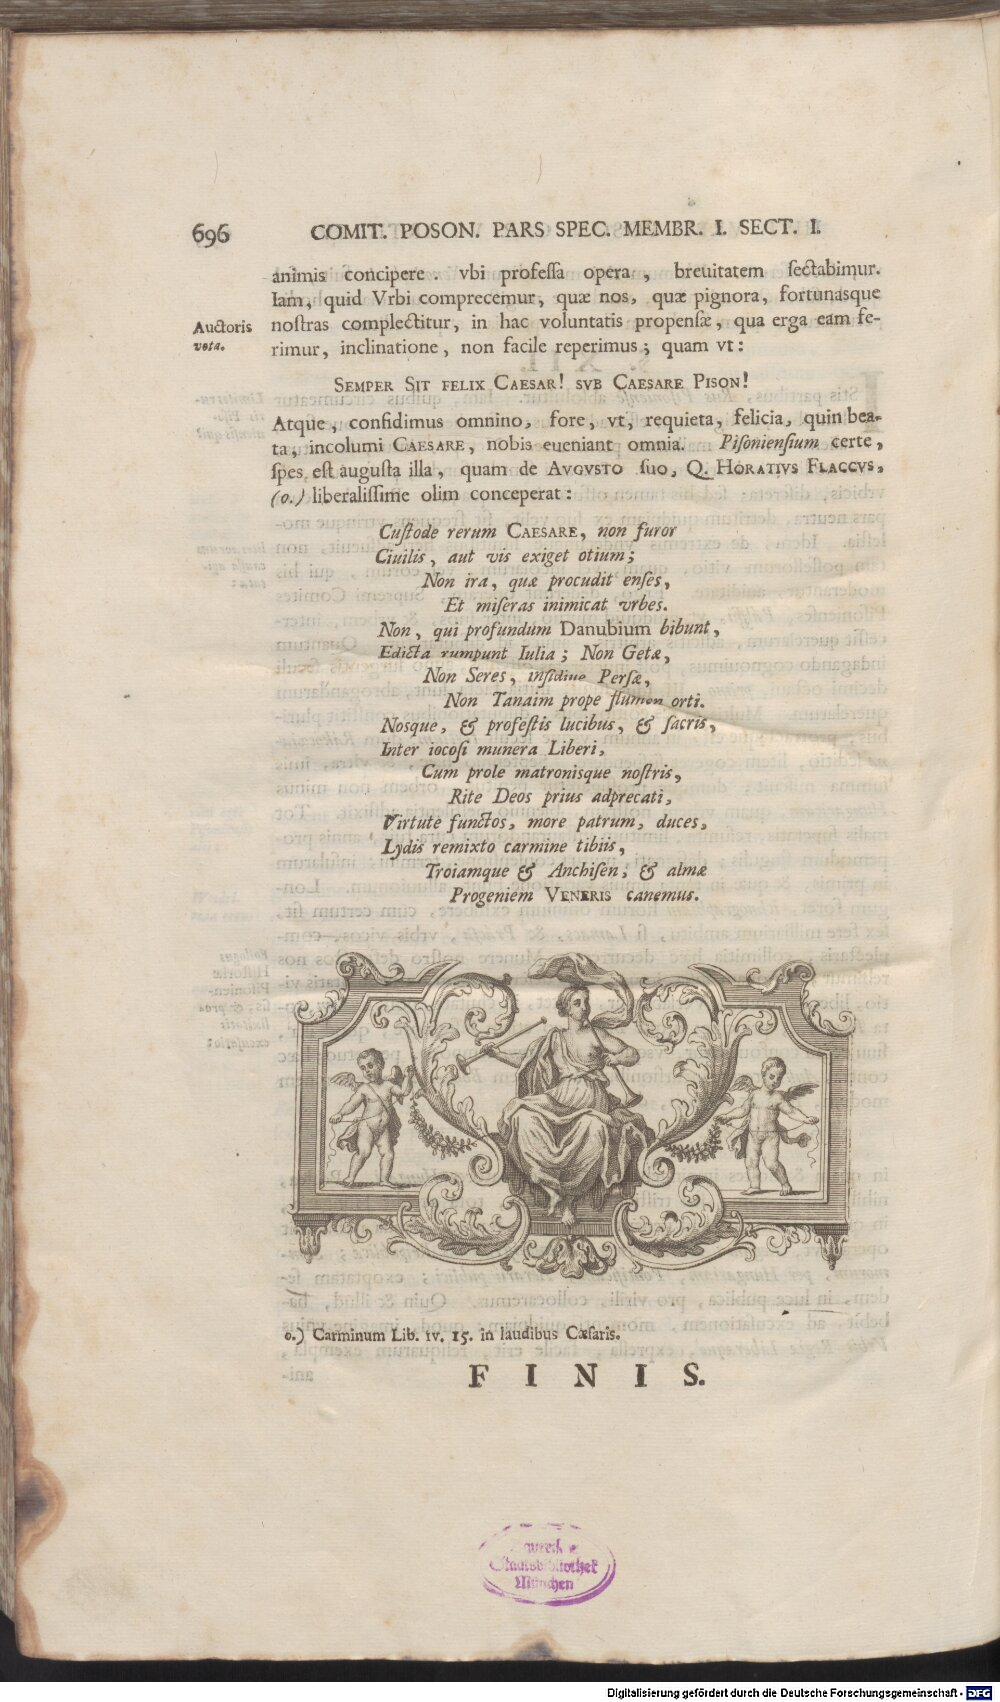 696 COMIT. POSON. PARS SPEC. MEMBR. I. SECT. I.
animis concipere. vbi professa opera, breuitatem sectabimur.
Iam, quid Vrbi comprecemur, quæ nos, quæ pignora, fortunasque
Auctoris vota.
nostras complectitur, in hac voluntatis propensæ, qua erga eam fe-
rimur, inclinatione, non facile reperimus; quam vt:
SEMPER SIT FELIX CAESAR! SVB CAESARE PISON!
Atque, confidimus omnino, fore, vt, requieta, felicia, quin bea-
ta, incolumi CAESARE, nobis eueniant omnia. Pisoniensium certe,
spes est augusta illa, quam de AVGVSTO suo, Q. HORATIVS FLACCVS,
(o.) liberalissime olim conceperat:
Custode rerum CAESARE, non furor
Ciuilis, aut vis exiget otium;
Non ira, quæ procudit enses,
Et miseras inimicat vrbes.
Non, qui profundum Danubium bibunt,
Edicta rumpunt Iulia; Non Getæ,
Non Seres, insidiue Persæ,
Non Tanaim prope flumen orti.
Nosque, & profestis lucibus, & sacris,
Inter iocosi munera Liberi,
Cum prole matronisque nostris,
Rite Deos prius adprecati,
Virtute functos, more patrum, duces,
Lydis remixto carmine tibiis,
Troiamque & Anchisen, & almæ
Progeniem VENERIS canemus.
o.) Carminum Lib. IV. 15. in laudibus Cæsaris.
FINIS.
Staatsbibliothek
München
Digitalisierung gefördert durch die Deutsche Forschungsgemeinschaft - DFG